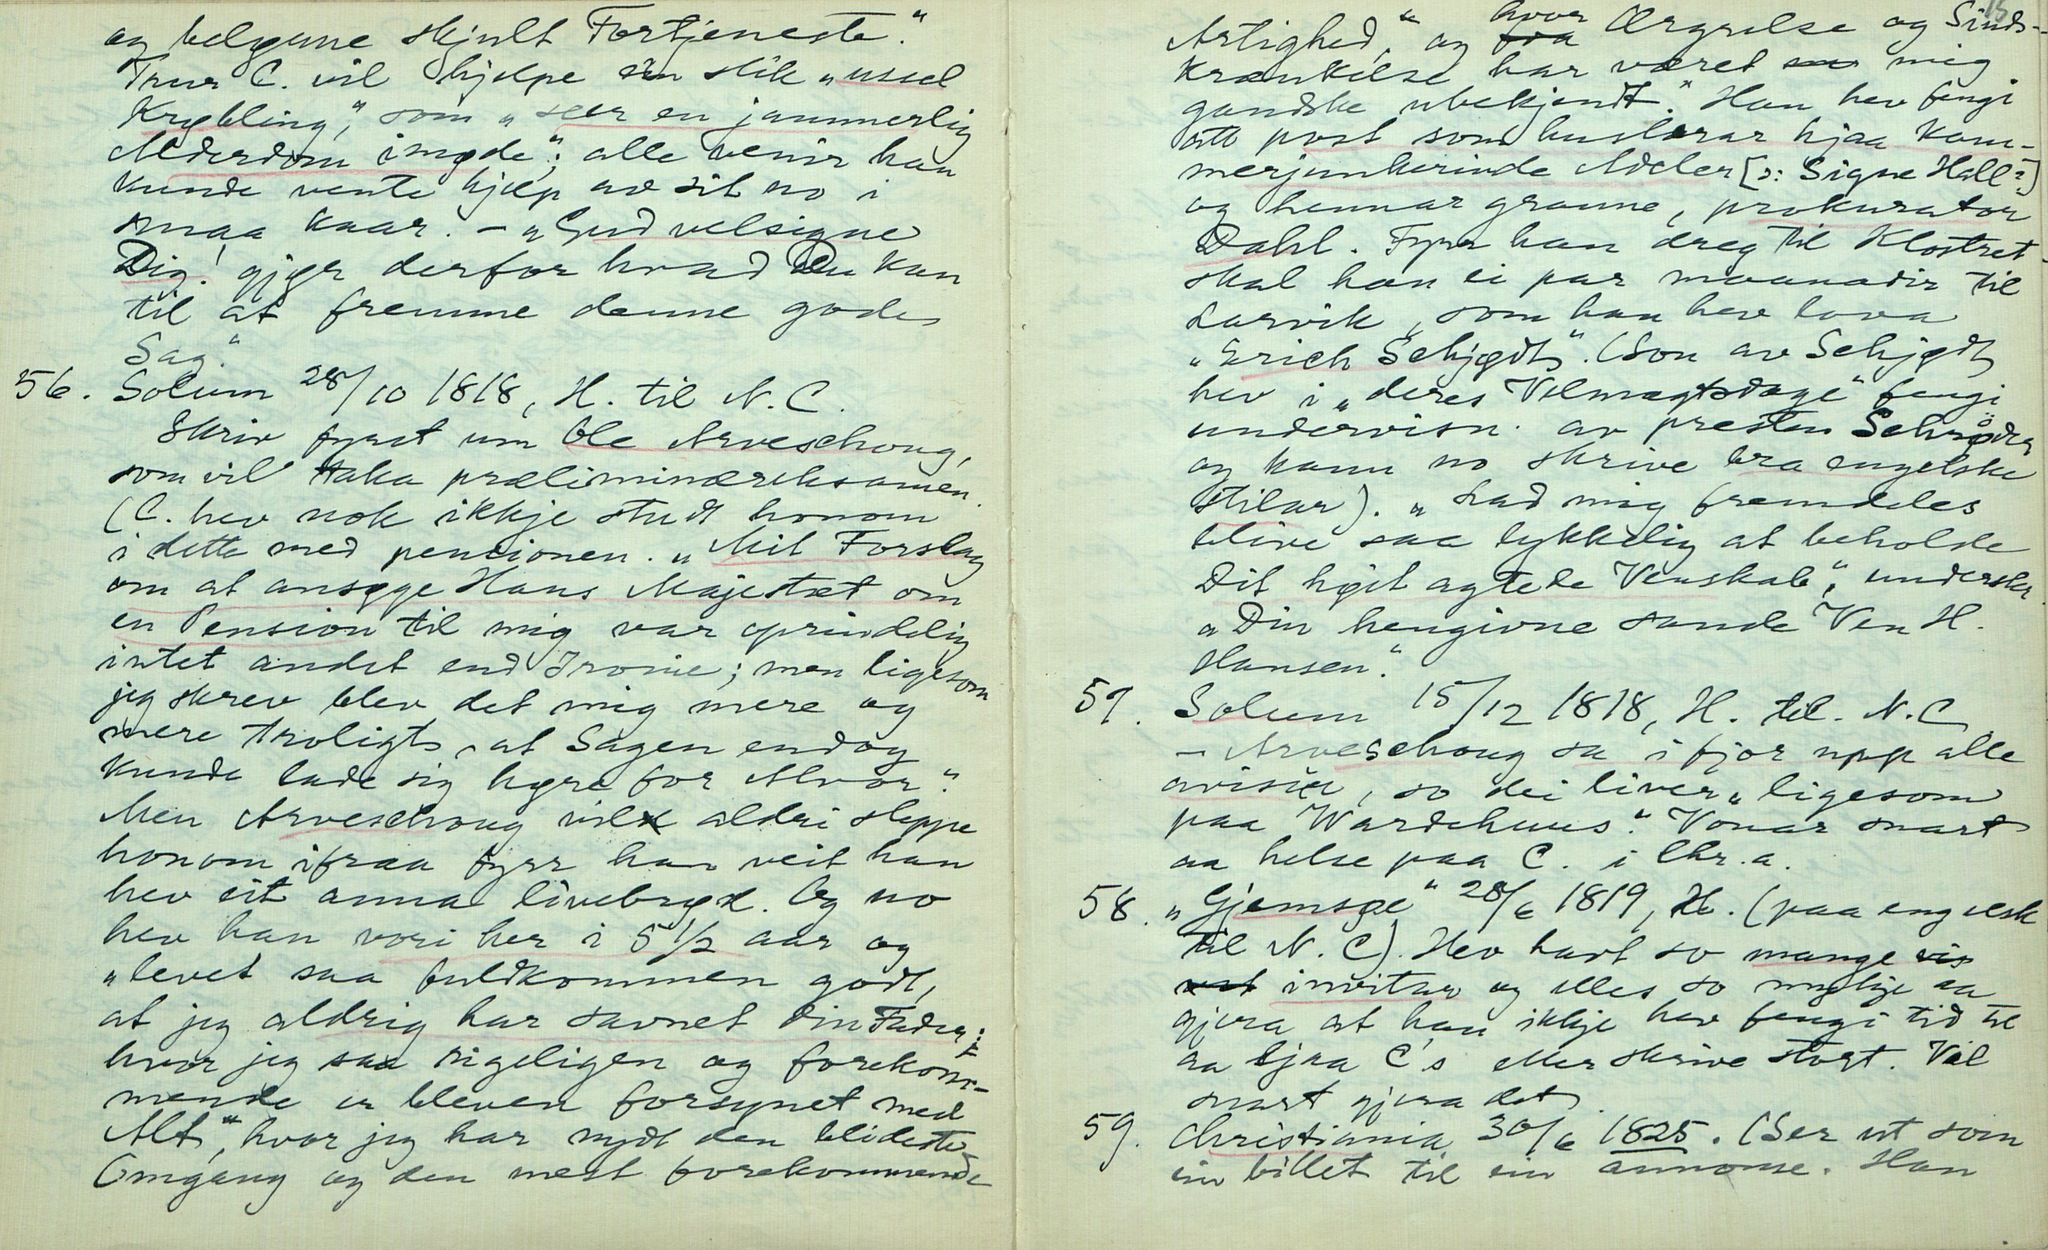 og belgune skjult Fortjeneste."
Trur C. vil hjelpe ein slik „ussel
Krybling", som „seer en jammerlig
Alderdom imøde"; alle venir han
kunde vente hjelp av sit no i
smaa kaar. — „Gud velsigne
Dig! gjør derfor hvad Du kan
til at fremme denne gode
Sag."
56. Solum 28/10 1818, H. til N. C.
Skriv fyrst um Ole Arveschoug,
som vil taka præliminæreksamen.
(C. hev nok ikkje studt honom
i dette med pensionen. „Mit Forslag
om at ansøge Hans Majestæt om
en Pension til mig var oprindelig
intet andet end Ironie; men ligesom
jeg skrev blev det mig mere og
mere troligt, at Sagen endog
kunde lade sig høre for Alvor."
Men Arveschoug vil aldri sleppe
honom ifraa fyrr han veit han
hev eit anna livebrød. Og no
hev han vori her i 5 1/2 aar og
„levet saa fuldkommen godt,
at jeg aldrig har savnet Din Fader;
hvor jeg saa rigeligen og forekom-
mende er bleven forsynet med
Alt", hvor jeg har nydt den blideste
Omgang og den mest forekommende
15
Artighed," og hvor Ærgrelse og Sinds-
krænkelse har været mig
gandske ubekjendt." Han hev fengi
att post som huslærar hjaa kam-
merjunkerinde Adeler [ɔ: Signe Hall?]
og hennar granne, prokurator
Dahl. Fyrr han dreg til Klostret
skal han ei par maanadir til
Larvik, som han hev lova
„Erich Schjødt". (Son av Schjødt
hev i „deres Velmagtsdage" fengi
undervisn. av presten Schrøder
og kann no skrive bra engelske
stilar). „Lad mig fremdeles
blive saa lykkelig at beholde
Dit høit agtede Venskab", underskr.
„Din hengivne sande Ven H.
Hansen."
57. Solum 15/12 1818, H. til N. C.
— Arveschoug sa i fjor upp alle
avisin, so dei liver „ligesom
paa Wardehuus". Vonar snart
aa helse paa C. i Chr.a.
58. „Gjemsøe" 28/6 1819, H. (paa engelsk
til N. C). Hev havt so mange
invitar og elles so mykje aa
gjera at han ikkje hev fengi tid til
aa sjaa C's eller skrive stort. Vil
snart gjera det.
59. Christiania 30/6 1825. (Ser ut som
ein billet til ein annonse. Han